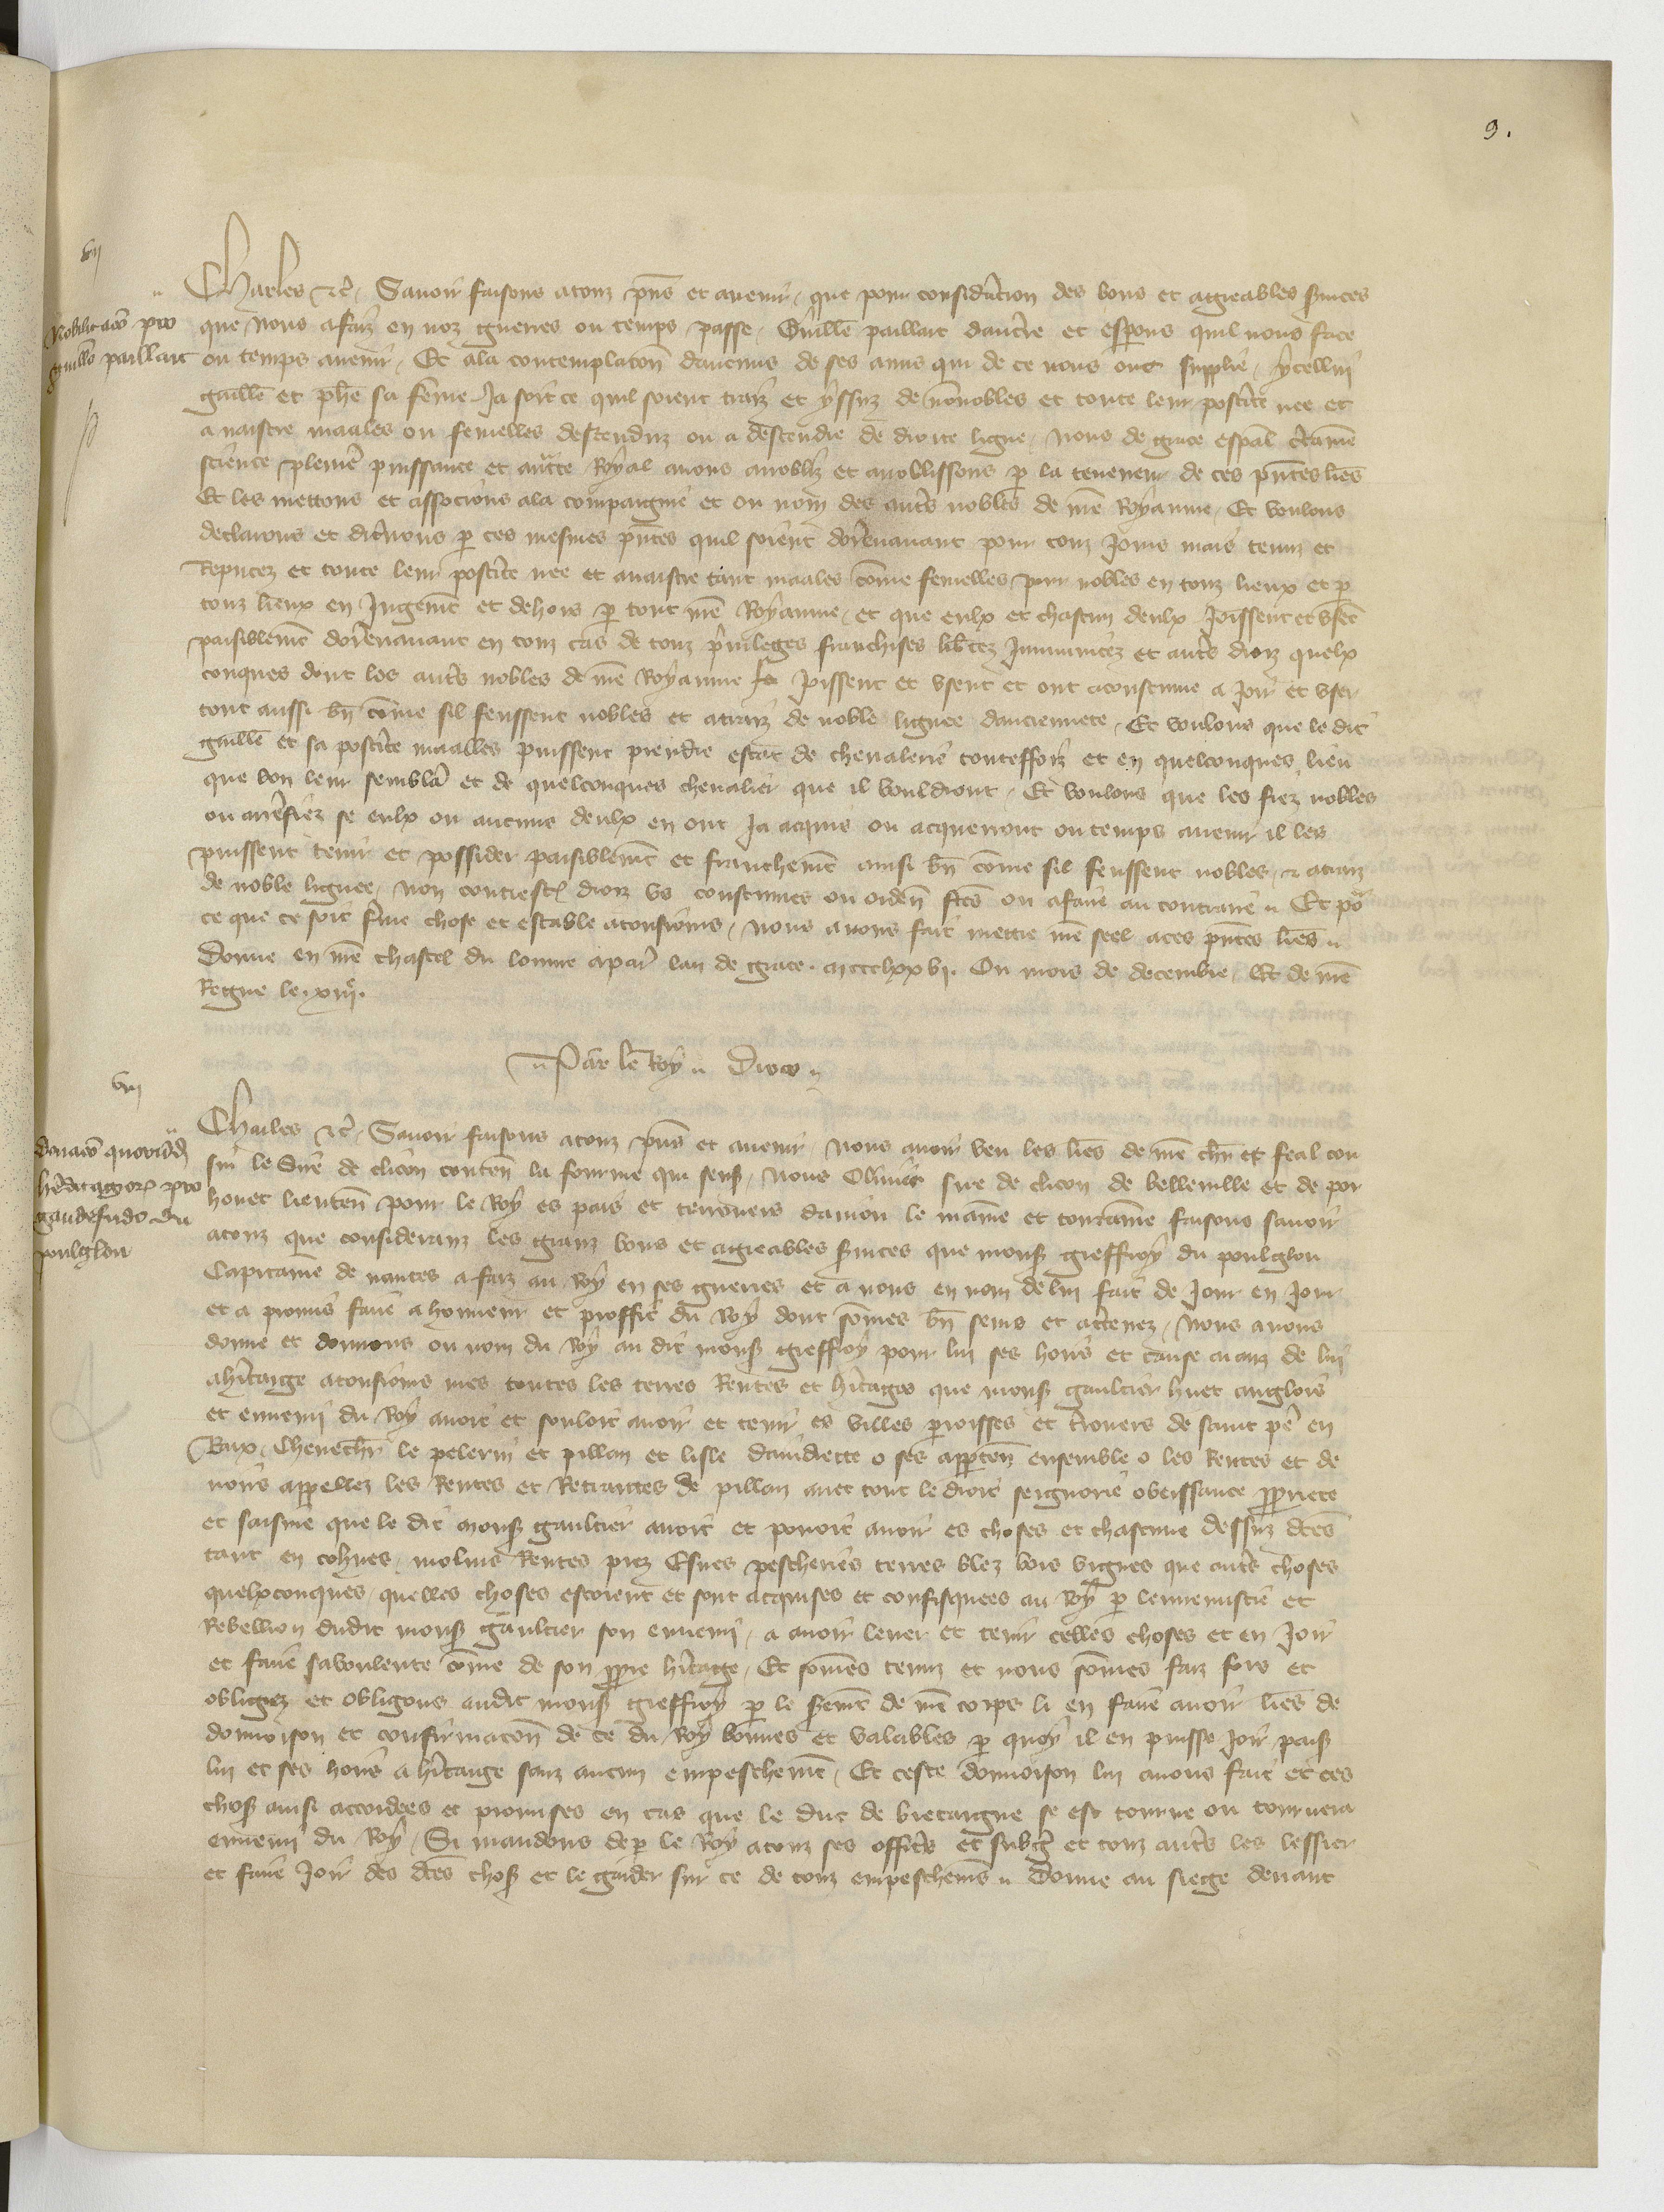 9.
vii
Nobilitacio pro
guillo paillart
Charles etc. Savoir faisons a touz pns et avenir, que pour considracion des bons et agreables svices
que nous a faiz en noz guerres ou temps passe, Guille paillart dancre et espons quil nous face
ou temps avenir, Et ala contemplacon daucuns de ses amis qui de ce nous ont supplie, ycellui
guille et phe sa feme Ja soit ce quil soient traiz et yssuz de nonnobles et toute leur postite nee et
a naistre maales ou femelles descenduz ou a descendre de droite ligne, nous de grace espal ctaine
science pleine puissance et aucte Royal avons anobliz et anoblissons p la teneur de ces pntes lres
Et les mettons et associons ala compaignie et ou nom des auts nobles de nre Royaume, Et voulons
declarons et dicnons p ces mesmes pntes quil soient dorenavant pour touz jours mais tenuz et
Reputez et toute leur postite nee et a naistre tant maales come femelles pour nobles en touz lieux et p
touz lieux en Jugemt et dehors p tout nre Royaume, et que eulx et chascun deulx Joissent et usent
paisiblemt dorenavant en touz cas de touz privileges franchises libtez Immunitez et auts droiz quelx
conques dont les auts nobles de nre Royaume Joissent et usent et ont acoustume a Joir et user
tout aussi bn come sil feussent nobles et atraiz de noble lignee danciennete, Et voulons que le dit
guille et sa postite maalles puissent prendre estat de chevalerie touteffoiz et en quelconques lieu
que bon leur semblera et de quelconques chevalier que il vouldront, Et voulons que les fiez nobles
ou arrefiez se eulx ou aucuns deulx en ont ja acquis ou acquerront ou temps avenir il les
puissent tenir et possider paisiblemt et franchemt ainsi bn come sil feussent nobles, et atraiz
de noble lignee, non contrest droiz us coustumes ou orden fctes ou a faire au contraire Et po
ce que ce soit fme chose et estable a tousjours, nous avons fait mettre nre seel a ces pntes lres
Donne en nre chastel du louvre a paris lan de grace mccclxxvi. Ou mois de decembre, Et de nre
Regne le xiiie.
Par le Roy Dino
viii
Donacio quorumd
hditagiorz pro
gaudefrido du
poulglou
Charles etc. Savoir faisons a touz pns et avenir, Nous avoir veu les lres de nre chr et feal cou
sin le sire de clicon conten la fourme qui sens, Nous Olivier sire de clicon de belleville et de por
houet lieuten pour le Roy es pais et terrouers danjou le maine et touraine faisons savoir
a touz que considerans les granz bons et agreables svices que mons gieffroy du poulglou
Capitaine de nantes a faiz au Roy en ses guerres et a nous en nom de lui fait de Jour en Jour
et a promis faire a honneur et proffit du Roy dont somes bn seurs et actenez, Nous avons
donne et donnons ou nom du Roy au dit mons gieffroy pour lui ses hoirs et cause aianz de lui
a hitaige a tousjours mes toutes les terres Rentes et hitages que mons gaultier huet anglois
et ennemi du Roy avoit et souloit avoir et tenir es villes proisses et trouers de saint pe en
Rax, Chenechr le pelerin et pillan et lisle dandrette o ses apparten ensemble o les Rentes et de
noirs appellez les Rentes et Retraittes de pillan avec tout le droit seignorie obeissance pprete
et saisine que le dit mons gaultier avoit et povoit avoir es choses et chascune dessuz dctes
tant en cohues, molins Rentes prez Esves pescheries terres blez bois vignes que auts choses
quelxconques, quelles choses estoient et sont acquises et confisquees au Roy p lennemistie et
Rebellion dudit mons gaultier son ennemi, a avoir lever et tenir celles choses et en Joir
et faire sa voulente come de son ppre hitage, Et somes tenuz et nous somes faiz fors et
obligez et obligons audit mons gieffroy p le sremt de nre corps li en faire avoir lres de
donnoison et confirmacon de ce du Roy bonnes et valables p quoy il en puisse Joir pais
lui et ses hoirs a hitaige sanz aucun empeschemt, Et ceste donnoison lui avons fait et ces
chos ainsi accordees et promises en cas que le duc de bretaigne se est tourne ou tournera
ennemi du Roy, Si mandons dep le Roy a touz ses offics et subgz et touz auts les lessier
et faire Joir des dctes chos et le garder sur ce de touz empeschems Donne au siege devant